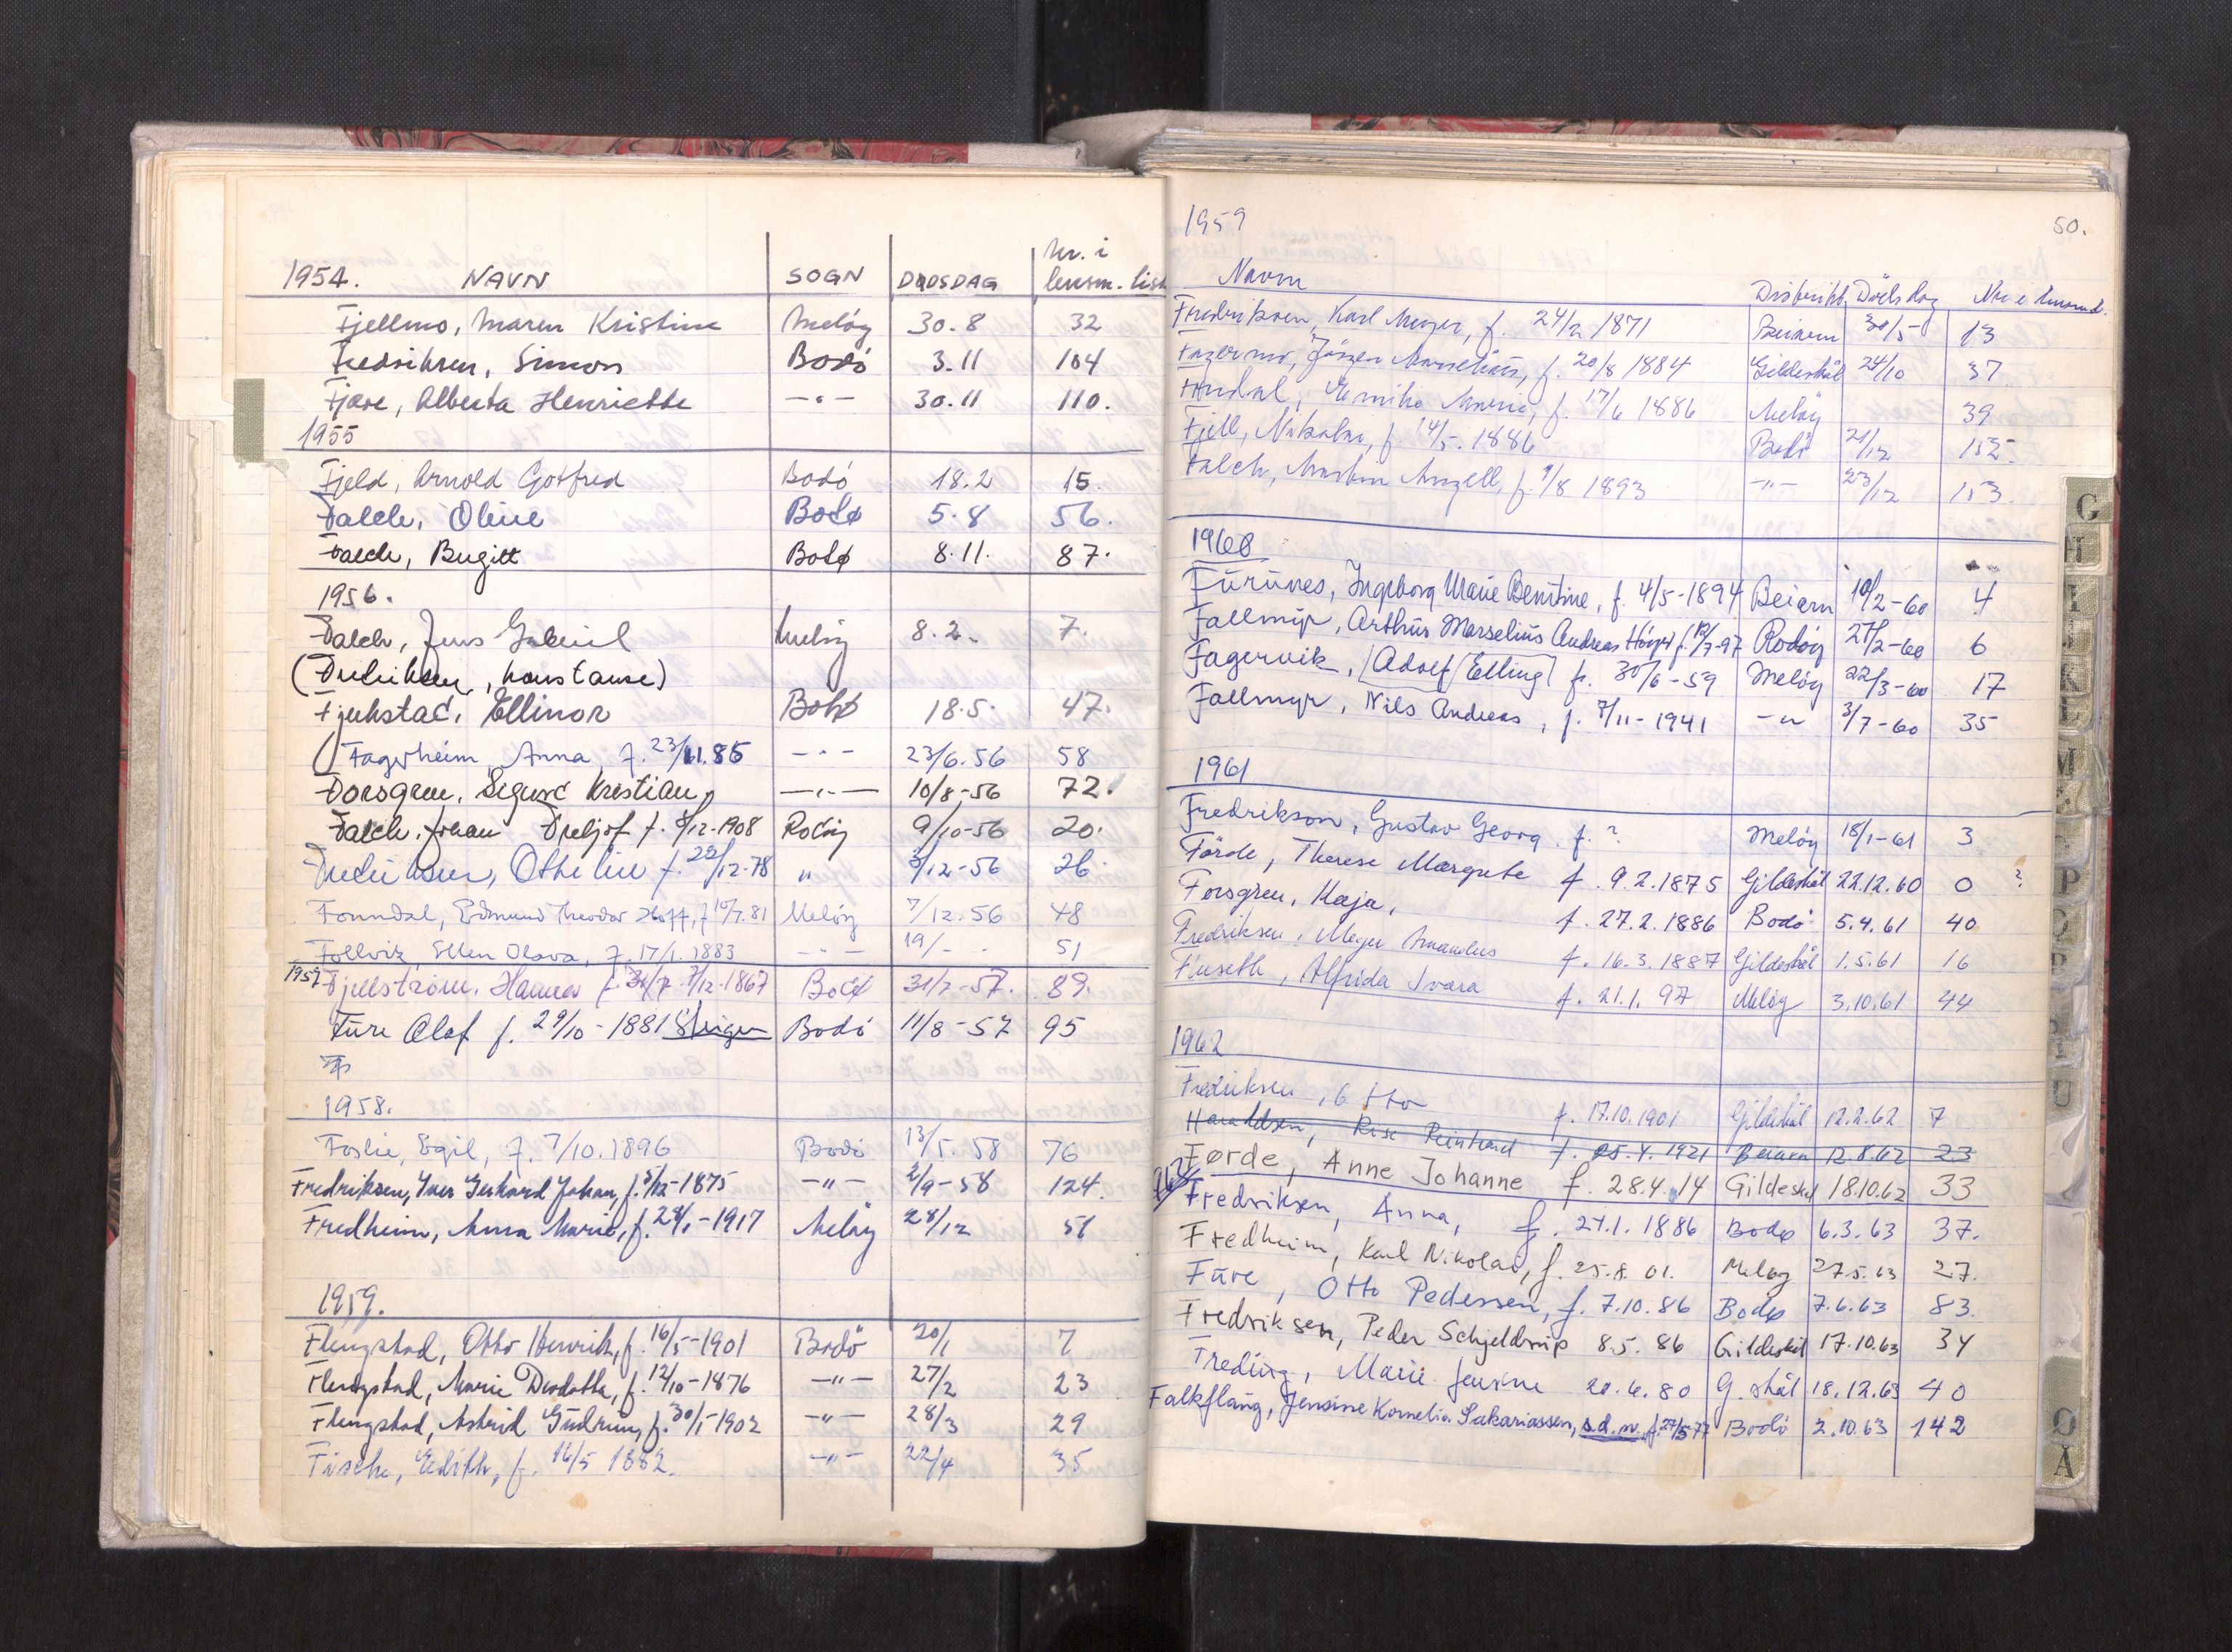 1954. NAVN SOGN DØDSDAG Nr. i lensm. list
Fjellmo, Maren Kristine Meløy 30.8 32
Fredriksen, Simon Bodö 3.11 104
Fjære, Alberta Henriette —"— 30.11 110.
1955
Fjeld, Arnold Gotfred Bodó 18.2 15.
Falch, Oline Bodø 5.8 56.
Falch, Birgitt Bodø 8.11. 87.
1956.
Falch, Jens Gabriel Meløy 8.2. 7.
(Fredriksen, Konstanse)
Fjukstad, Ellinor Bodø 18.5. 47.
(Fagerheim, Anna, f. 23/11.85 —"— 23/6.56 58
Forsgren, Sigurd Kristian —"— 10/8-56 72.
Falch, Johan Freljof f. 8/12-1908 Rödöy 9/10-56 20.
Fredriksen, Otheline f. 22/12-78 " 3/12-56 26.
Fonndal, Edmund Theodor Hoff, f. 10/7.81 Melöy 7/12.56 48
Follvik, Ellen Olava, f. 17/1.1883 —"— 19/- - 51
1957 Fjellström, Hanna f. 7/12-1867 Bodø 31/7-57. 89.
Füre Olaf f. 29/10-1881 Steigen Bodö 11/8-57 95
1958.
Foslie, Egil, f. 7/10.1896 Bodö 13/5.58 76
Fredriksen, Ivar Gerhard Johan, f. 5/12-1875 —"— 2/9-58 124.
Fredheim, Anna Marie, f. 28/1-1917 Meløy 28/12 51
1959.
Flengstad, Otto Henrik, f. 16/5-1901 Bodö 20/1 7
Flengstad, Marie Dorothea, f. 12/10-1876 —"— 27/2 23
Flengstad, Astrid Gudrun, f. 30/1-1902 —"— 28/3 29
Fische, Edith, f. 16/5 1882. —"— 22/4 35
1959 50.
Navn Distrikt Dödsdag Nr. i lensmd.
Fredriksen, Karl Meyer, f. 24/2 1871 Beiarn 30/5 13
Fagermo, Jörgen Marselius, f. 20/8 1884 Gildeskål 24/10 37
Emilie Marie, f. 17/6 1886 Melöy 39
Fjell, Nikolai, f. 14/5.1886 Bodö 21/12 152.
Falch, Martin Angell, f. 9/8 1893 —"— 23/12 153.
1960
Furunes, Ingeborg Marie Benitine, f. 4/5-1894 Beiarn 10/2-60 4
Fallmyr, Arthur Marselius Andreas Höyer f. 12/7-97 Rødøy 27/2-60 6
Fagervik, [Adolf [Elling] f. 30/6-59 Meløy 22/3-60 17
Fallmyr, Nils Andreas, f. 7/11-1941 —"— 3/7-60 35
1961
Fredrikson, Gustav Georg f. ? Meløy 18/1-61 3
Förde, Therese Margrete f. 9.2.1875 Gildeskål 22.12.60 0 ?
Forsgren, Kaja, f. 27.2.1886 Bodö 5.4.61 40
Fredriksen, Meyer Amandus f. 16.3.1887 Gildeskål 1.5.61 16
Fuseth, Alfrida Ivara f. 21.1.97 Meløy 3.10.61 44
1962
Fredriksen, Otto f. 17.10.1901 Gildeskål 12.2.62 7
Haraldsen, f. 25.4.1921 Beiarn 12.8.62 23
Førde, Anne Johanne f. 28.4.14 Gildeskål 18.10.62 33
Fredriksen, Anna, f. 27.1.1886 Bodø 6.3.63 37.
Fredheim, Karl Nikolai, f. 25.8.01. Meløy 27.5.63 27.
Füre, Otto Pedersen, f. 7.10.86 Bodø 7.6.63 83.
Fredriksen, Peder Schjeldrup 8.5.86 Gildeskål 17.10.63 34
Freding, Marie Jensine 20.6.80 G.skål 18.12.63 40
Falkflaug, Jensine Kornelia Sakariassen, s.d.m. f. 27/5 77 Bodö 2.10.63 142
G
H
I
J
K
L
M
P
U
Ø
Å